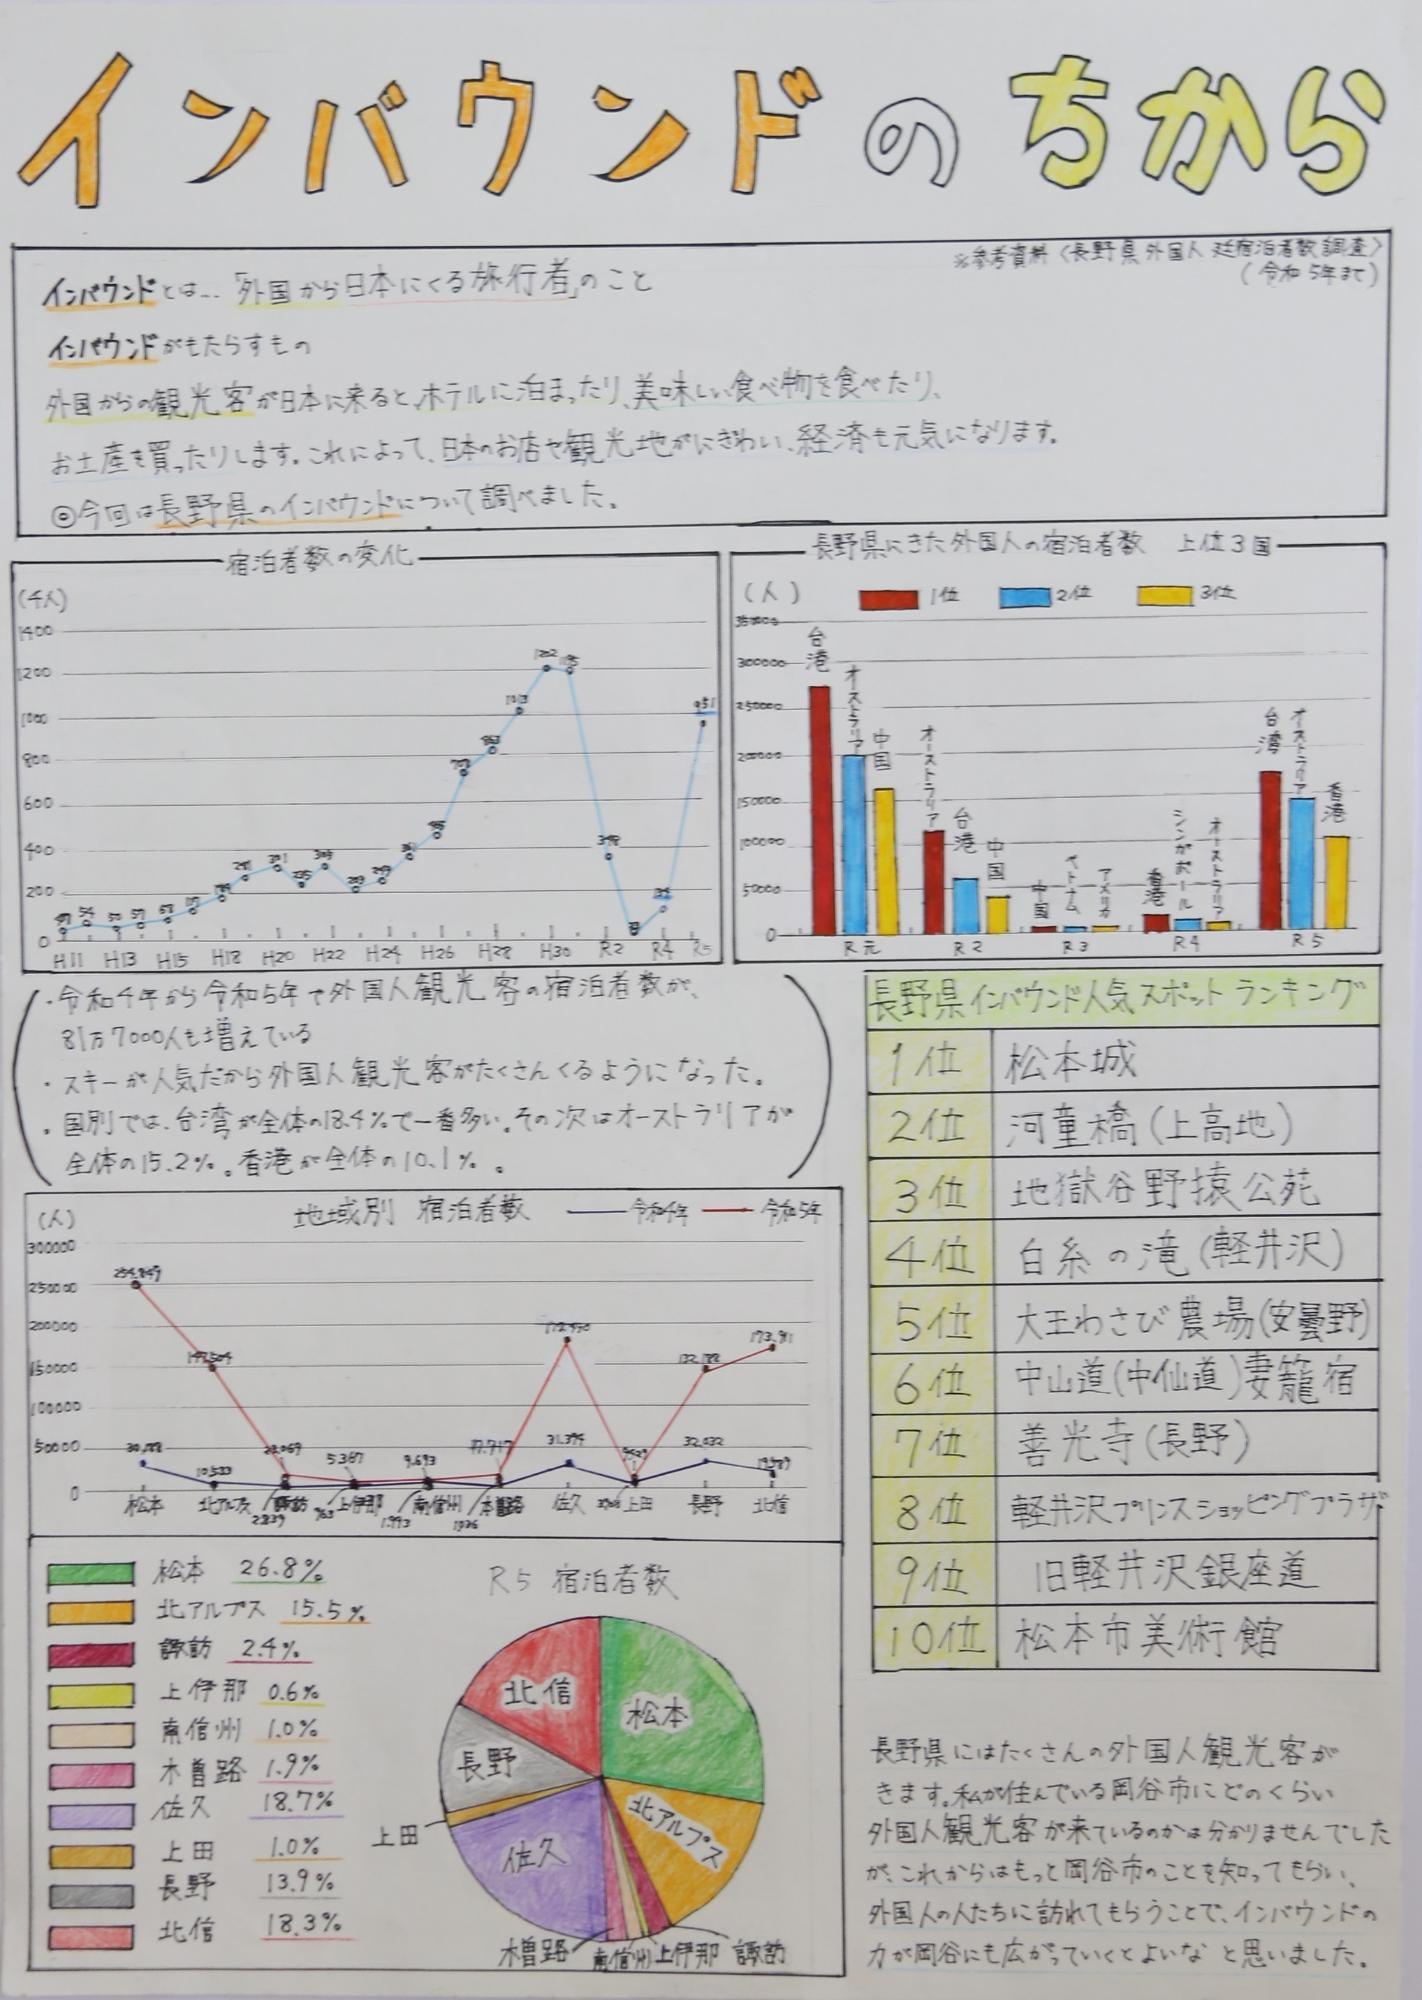 インバウンドのちから
※参考資料〈長野県外国人延宿泊者数調査〉
(令和5年まで)
インバウンドとは…「外国から日本にくる旅行者」のこと
インバウンドがもたらすもの
外国からの観光客が日本に来ると、ホテルに泊まったり、美味しい食べ物を食べたり、
お土産を買ったりします。これによって、日本のお店や観光地がにぎわい、経済も元気になります。
◎今回は長野県のインバウンドについて調べました。
宿泊者数の変化
(千人)
1400
1200
1000
800
600
400
200
0
1202
1013
863
951
H11 H13 H15 H18 H20 H22 H24 H26 H28 H30 R2 R4 R5
長野県にきた外国人の宿泊者数 上位3国
(人) 1位 2位 3位
350000
300000
250000
200000
150000
100000
50000
0
台港 オーストラリア 中国
オーストラリア 台港 中国
中国 ベトナム アメリカ
香港 シンガポール オーストラリア
台湾 オーストラリア 香港
R元 R2 R3 R4 R5
・令和4年から令和5年で外国人観光客の宿泊者数が、
81万7000人も増えている
・スキーが人気だから外国人観光客がたくさんくるようになった。
・国別では、台湾が全体の18.4%で一番多い。その次はオーストラリアが
全体の15.2%。香港が全体の10.1%。
長野県インバウンド人気スポットランキング
1位 松本城
2位 河童橋(上高地)
3位 地獄谷野猿公苑
4位 白糸の滝(軽井沢)
5位 大王わさび農場(安曇野)
6位 中山道(中仙道)妻籠宿
7位 善光寺(長野)
8位 軽井沢プリンスショッピングプラザ
9位 旧軽井沢銀座道
10位 松本市美術館
(人) 地域別 宿泊者数 令和4年 令和5年
300000
250000
200000
150000
100000
50000
0
147,504
173,911
132,188
5.387
9.693
17.717
31.394
32,032
10,533
2.839
763
1.993
松本 北アルプス 諏訪 上伊那 南信州 木曽路 佐久 上田 長野 北信
R5 宿泊者数
松本 26.8%
北アルプス 15.5%
諏訪 2.4%
上伊那 0.6%
南信州 1.0%
木曽路 1.9%
佐久 18.7%
上田 1.0%
長野 13.9%
北信 18.3%
北信
松本
長野
北アルプス
上田
佐久
木曽路 南信州 上伊那 諏訪
長野県にはたくさんの外国人観光客が
きます。私が住んでいる岡谷市にどのくらい
外国人観光客が来ているのかは分かりませんでした
が、これからはもっと岡谷市のことを知ってもらい、
外国人の人たちに訪れてもらうことで、インバウンドの
力が岡谷にも広がっていくとよいなと思いました。